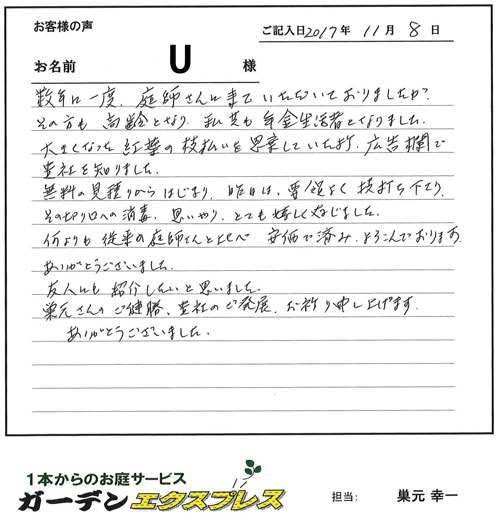 お客様の声
ご記入日2017年 11月 8日
お名前 U 様
数年に一度、庭師さんに来ていただいておりましたが、
その方も高齢となり、私共も年金生活者となりました。
大きくなった紅葉の枝払いを思案していた折、広告欄で
貴社を知りました。
無料の見積りからはじまり、昨日は、手際よく枝打ち下さり、
その切り口への消毒、思いやり、とても嬉しく存じました。
何よりも従来の庭師さんと比べ 安価で済み、よろこんでおります
ありがとうございました。
友人にも紹介したいと思いました。
巣元さんのご健勝、貴社のご発展、お祈り申し上げます。
ありがとうございました。
1本からのお庭サービス
ガーデンエクスプレス
担当: 巣元 幸一